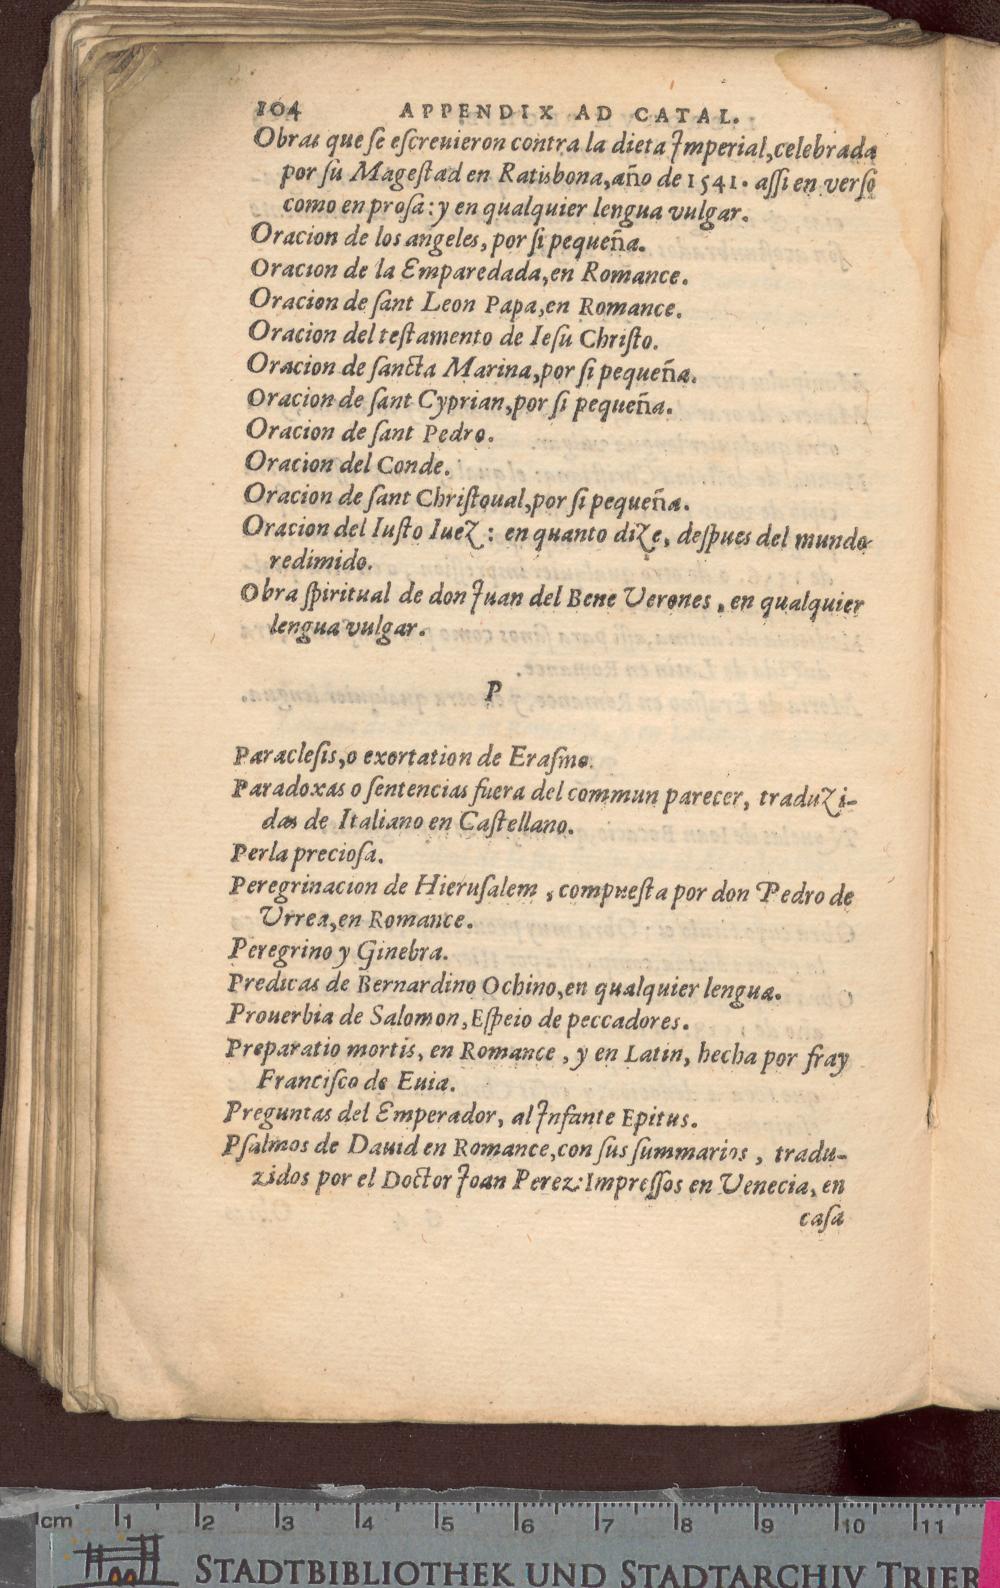 104 APPENDIX AD CATAL.
Obras que ſe eſcreuieron contra la dieta Imperial,celebrada
por ſu Mageſtad en Ratisbona,año de 1541. aſſi en verſo
como en proſa: y en qualquier lengua vulgar.
Oracion de los angeles, por ſi pequeña.
Oracion de la Emparedada,en Romance.
Oracion de ſant Leon Papa,en Romance.
Oracion del teſtamento de Ieſu Chriſto.
Oracion de ſancta Marina,por ſi pequeña.
Oracion de ſant Cyprian,por ſi pequeña.
Oracion de ſant Pedro.
Oracion del Conde.
Oracion de ſant Chriſtoual,por ſi pequeña.
Oracion del Iuſto Iuez : en quanto dize, deſpues del mundo
redimido.
Obra ſpiritual de don Juan del Bene Verones, en qualquier
lengua vulgar.
P
Paracleſis,o exortation de Eraſmo.
Paradoxas o ſentencias fuera del commun parecer, traduzi-
das de Italiano en Caſtellano.
Perla precioſa.
Peregrinacion de Hieruſalem, compueſta por don Pedro de
Vrrea,en Romance.
Peregrino y Ginebra.
Predicas de Bernardino Ochino,en qualquier lengua.
Prouerbia de Salomon, Eſpeio de peccadores.
Preparatio mortis, en Romance, y en Latin, hecha por fray
Franciſco de Euia.
Preguntas del Emperador, al Infante Epitus.
Pſalmos de Dauid en Romance,con ſus ſummarios, tradu-
zidos por el Doctor Joan Perez: Impreſſos en Venecia, en
caſa
cm 1 2 3 4 5 6 7 8 9 10 11
STADTBIBLIOTHEK UND STADTARCHIV TRIER